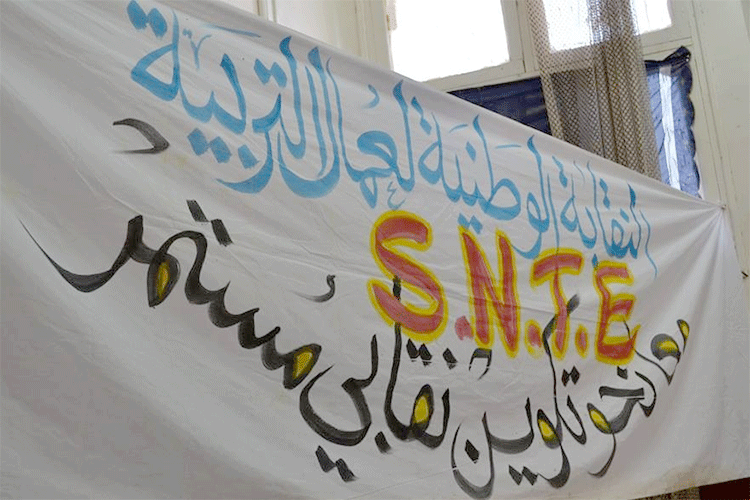 النقابة الوطنية لعمال التربية
S.N.T.E
معا نحو تكوين نقابي مستمر